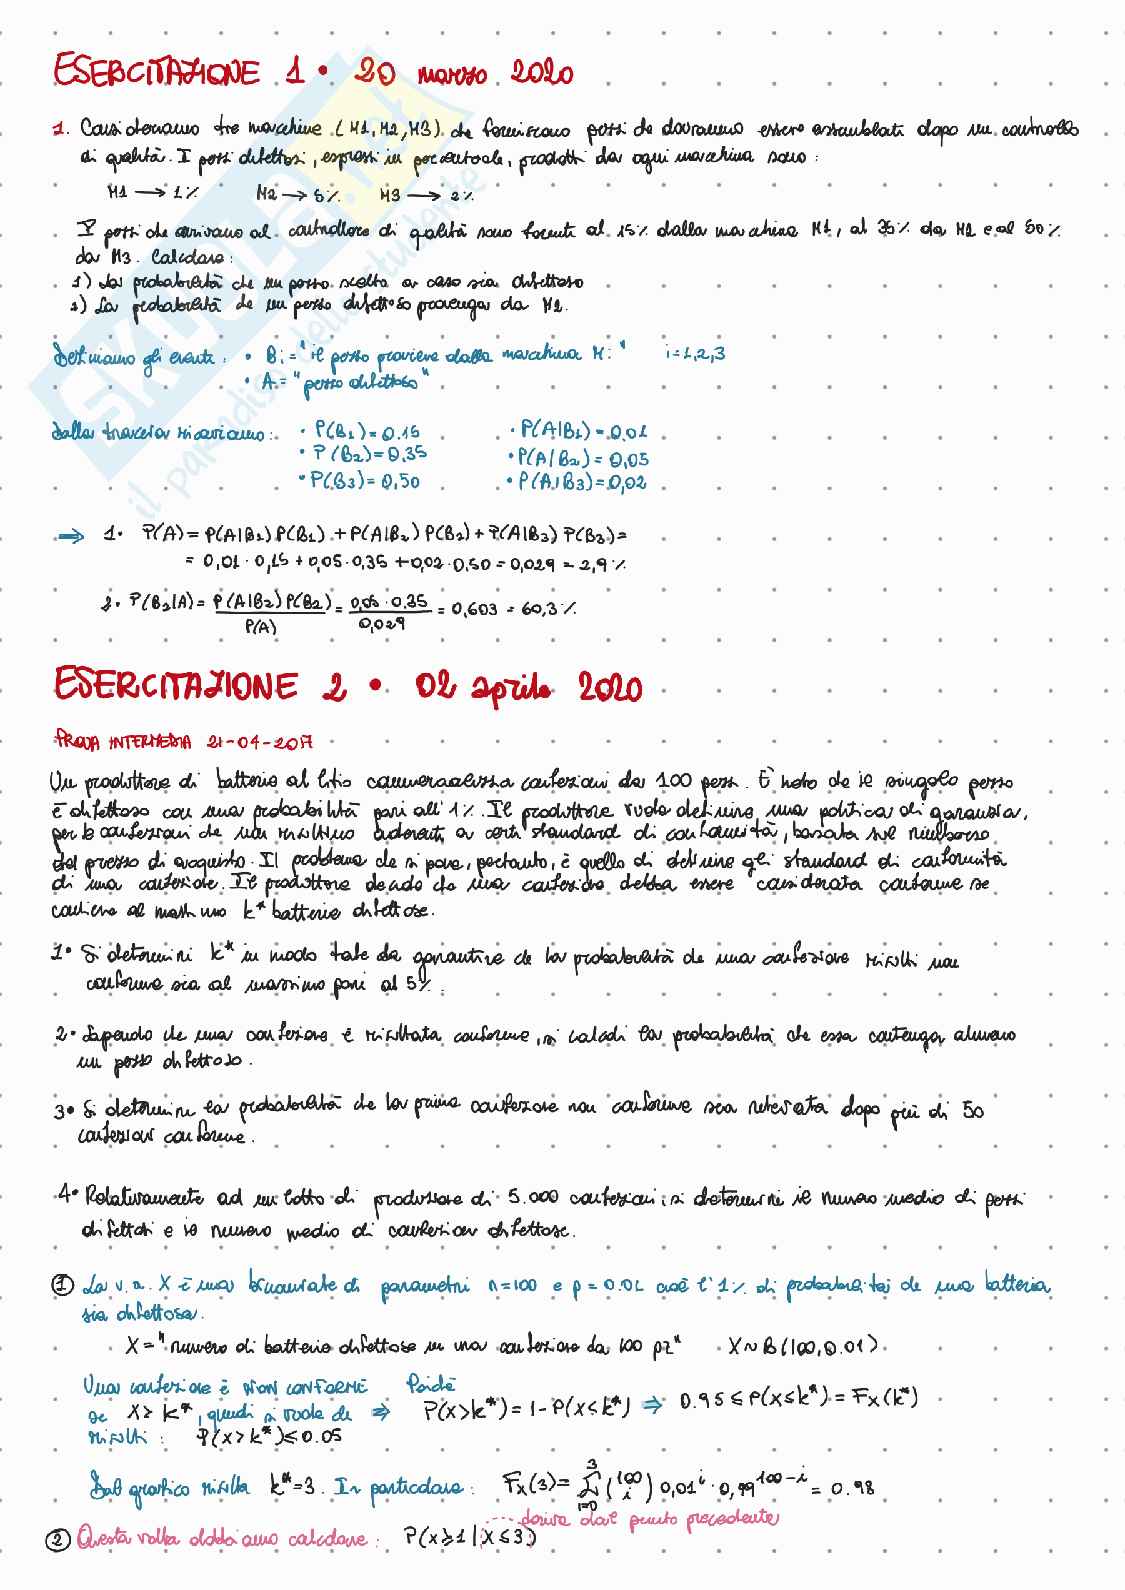 ESERCITAZIONE 1 • 20 marzo 2020
1. Consideriamo tre macchine (M1, M2, M3) che forniscono pezzi che dovranno essere assemblati dopo un controllo
di qualità. I pezzi difettosi, espressi in percentuale, prodotti da ogni macchina sono:
M1 → 1% M2 → 5% M3 → 2%
I pezzi che arrivano al controllore di qualità sono forniti al 15% dalla macchina M1, al 35% da M2 e al 50%
da M3. Calcolare:
1) La probabilità che un pezzo scelto a caso sia difettoso
2) La probabilità che un pezzo difettoso provenga da M2.
Definiamo gli eventi: • Bi = "il pezzo proviene dalla macchina Mi" i=1,2,3
• A = "pezzo difettoso"
Dalla traccia ricaviamo: • P(B1)=0.15 • P(A|B1)=0,01
• P(B2)=0,35 • P(A|B2)=0,05
• P(B3)=0,50 • P(A|B3)=0,02
⇒ 1• P(A)=P(A|B1)P(B1)+P(A|B2)P(B2)+P(A|B3)P(B3)=
= 0,01·0,15+0,05·0,35+0,02·0,50=0,029=2,9%
2• P(B2|A)= P(A|B2)P(B2)/P(A) = 0,05·0,35/0,029 = 0,603 = 60,3%
ESERCITAZIONE 2 • 02 aprile 2020
PROVA INTERMEDIA 21-04-2017
Un produttore di batterie al litio commercializza confezioni da 100 pezzi. È noto che il singolo pezzo
è difettoso con una probabilità pari all'1%. Il produttore vuole definire una politica di garanzia,
per le confezioni che non risultino aderenti a certi standard di conformità, basata sul rimborso
del prezzo di acquisto. Il problema che si pone, pertanto, è quello di definire gli standard di conformità
di una confezione. Il produttore decide che una confezione debba essere considerata conforme se
contiene al massimo k* batterie difettose.
1• Si determini k* in modo tale da garantire che la probabilità che una confezione risulti non
conforme sia al massimo pari al 5%.
2• Sapendo che una confezione è risultata conforme, si calcoli la probabilità che essa contenga almeno
un pezzo difettoso.
3• Si determini la probabilità che la prima confezione non conforme sia rilevata dopo più di 50
confezioni conforme.
4• Relativamente ad un lotto di produzione di 5.000 confezioni, si determini il numero medio di pezzi
difettosi e il numero medio di confezioni difettose.
① La v.a. X è una binomiale di parametri n=100 e p=0.01 cioè l'1% di probabilità che una batteria
sia difettosa.
X = "numero di batterie difettose in una confezione da 100 pz" X∼B(100,0.01)
Una confezione è NON CONFORME Poiché
se X > k*, quindi si vuole che ⇒ P(X>k*)=1-P(X≤k*) ⇒ 0.95≤P(X≤k*)=Fx(k*)
risulti: P(X>k*)≤0.05
Dal grafico risulta k*=3. In particolare: Fx(3)= ∑_{i=0}^{3} (100 i) 0,01^i · 0,99^{100-i} = 0.98
deriva dal punto precedente
② Questa volta dobbiamo calcolare: P(X≥1|X≤3)
SKUOLA.net
il paradiso dello studente